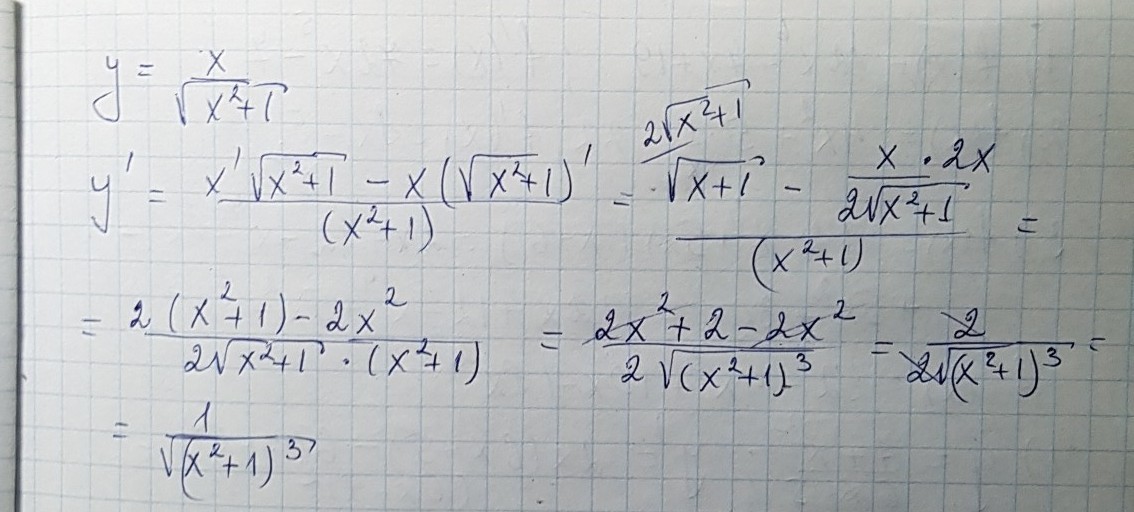 y = x/√(x²+1)
y' = (x'√(x²+1) - x(√(x²+1))')/(x²+1) = (^{2√(x²+1)/} √(x+1) - x·2x/(2√(x²+1)))/(x²+1) =
= (2(x²+1) - 2x²)/(2√(x²+1)·(x²+1)) = (2x² + 2 - 2x²)/(2√(x²+1)³) = 2/(2√(x²+1)³) =
= 1/√(x²+1)³